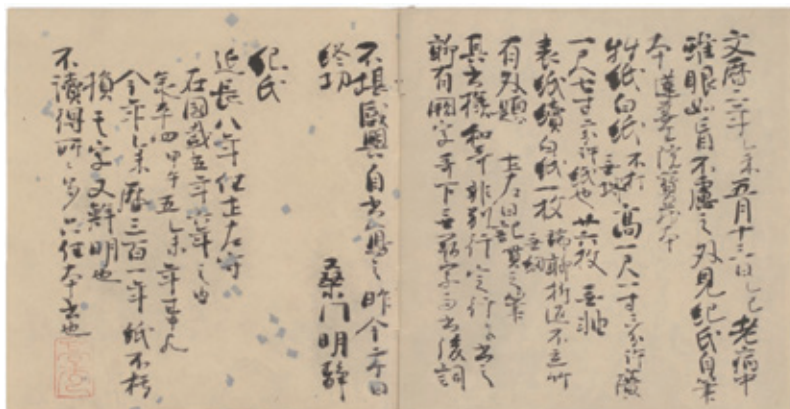 文暦二年乙未五月十三日乙巳老病中
雖眼如盲不慮之外見紀氏自筆
本蓮華王院寶蔵本
料紙白紙不打無堺高一尺一寸三分許廣
一尺七寸二分許紙也廿六枚無軸
表紙續白紙一枚端聊折返不立竹無紐
有外題 土左日記貫之筆
其書樣和哥非別行定行に書之
聊有闕字哥下無闕字而書後詞
不堪感興自書寫之昨今二ヶ日
終功 桑門明靜
紀氏
延長八年任土左守
在國載五年六年之由
承平四甲午五乙未年
今年乙未暦三百一年紙不朽
損其字又鮮明也
不讀得所々多只任本書也